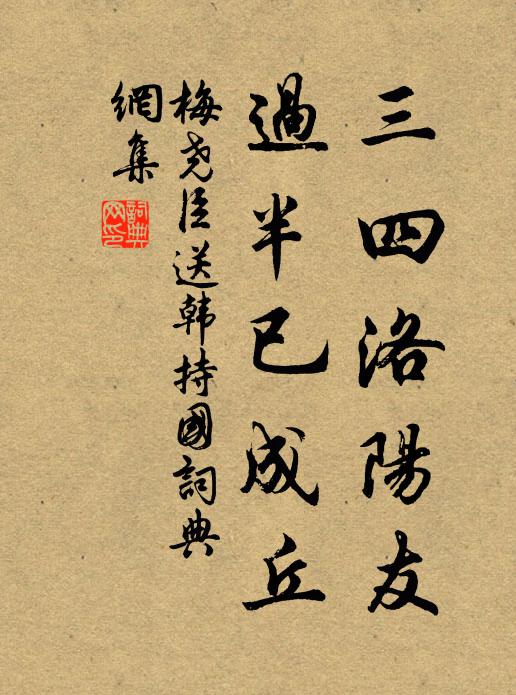 三四洛陽友
過半已成丘
梅尧臣送韩持國詞典
網集
詞典
网印